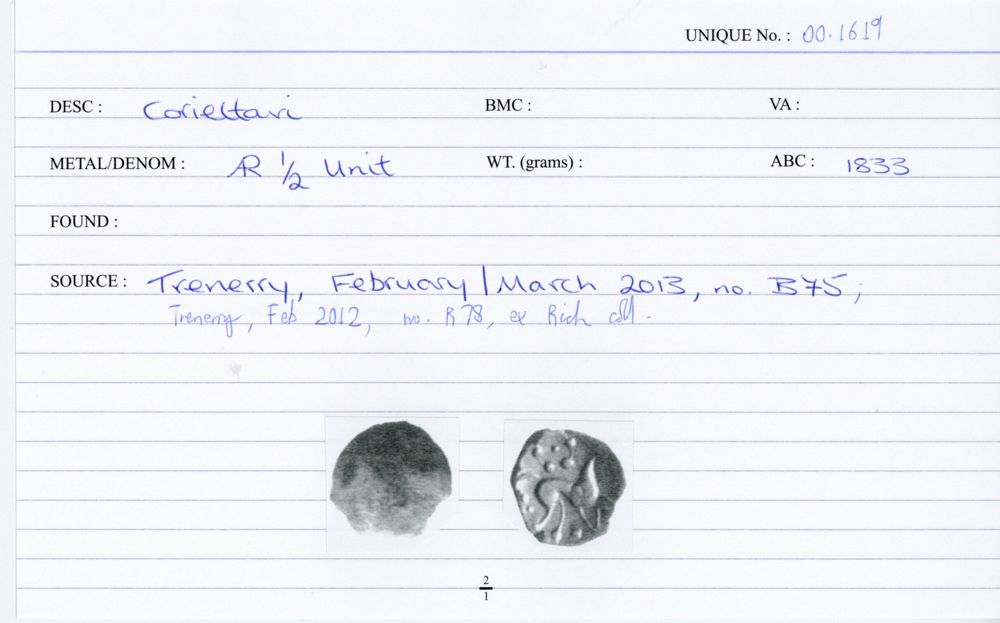 UNIQUE No. : 00.1619
DESC : Corieltavi BMC : VA :
METAL/DENOM : AR ½ Unit WT. (grams) : ABC : 1833
FOUND :
SOURCE : Trenerry, February/March 2013, no. B75;
Trenerry, Feb 2012, no. R78, ex Rich coll.
2
1